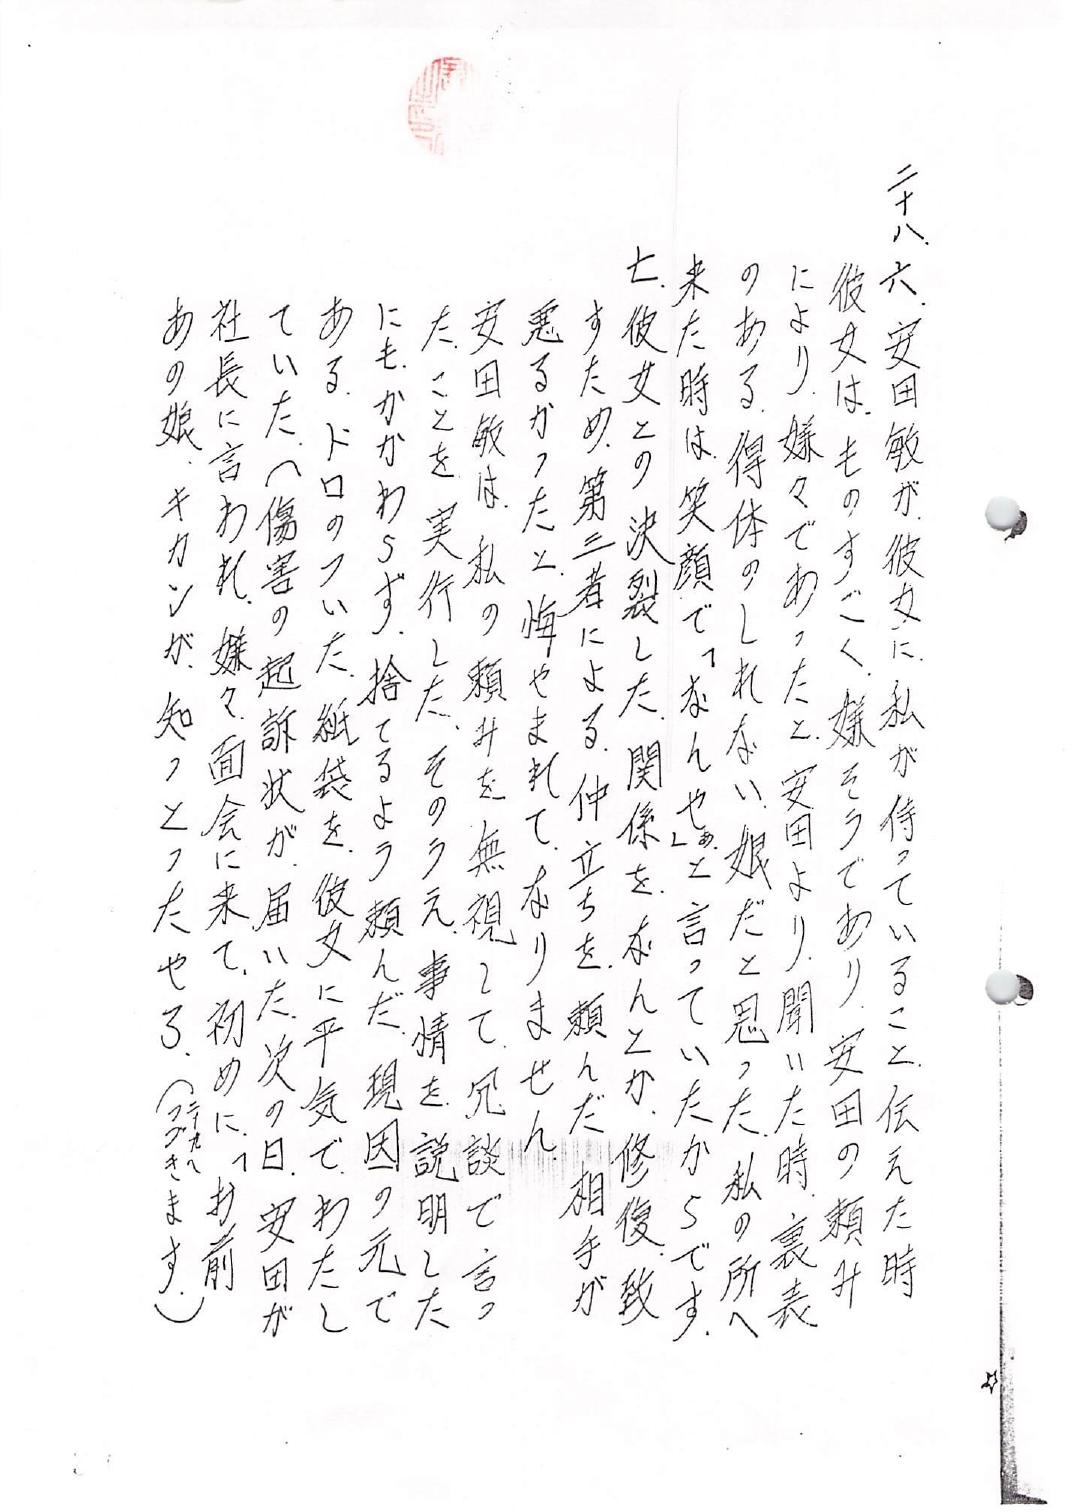 二十八、六、安田敏が、彼女に、私が待っていること、伝えた時
彼女は、ものすごく、嫌そうであり、安田の頼み
により、嫌々であったと、安田より、聞いた時、裏表
のある、得体のしれない、娘だと思った、私の所へ
来た時は、笑顔で「なんやぁ」と言っていたからです、
七、彼女との、決裂した、関係を、なんとか、修復、致
すため、第三者による、仲立ちを、頼んだ 相手が
悪るかったと、悔やまれて、なりません
安田敏は、私の頼みを無視して、冗談で言っ
た、ことを、実行した、そのうえ、事情を、説明した
にも、かかわらず、捨てるよう頼んだ、現因の元で
ある、ドロのついた、紙袋を、彼女に平気で、わたし
ていた、へ傷害の起訴状が、届いた、次の日、安田が
社長に言われ、嫌々、面会に来て、初めに、「お前
あの娘、キカンが、知っとったやろ、(二十九へつづきます。)